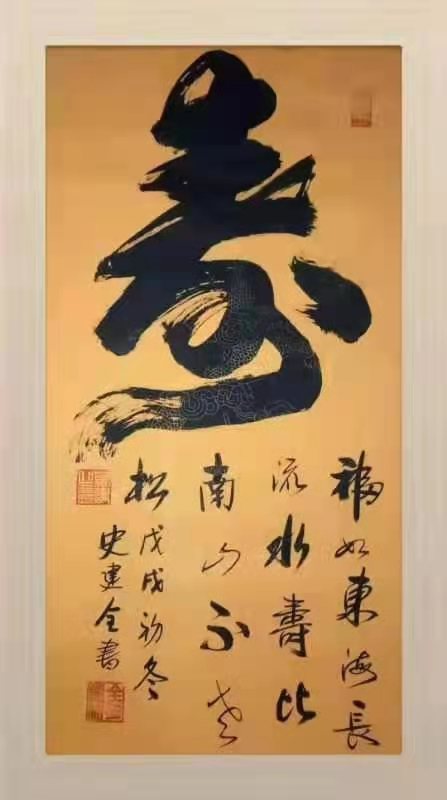 寿
福如東海長
流水壽比
南山不老
松
戊戌初冬
史建全書